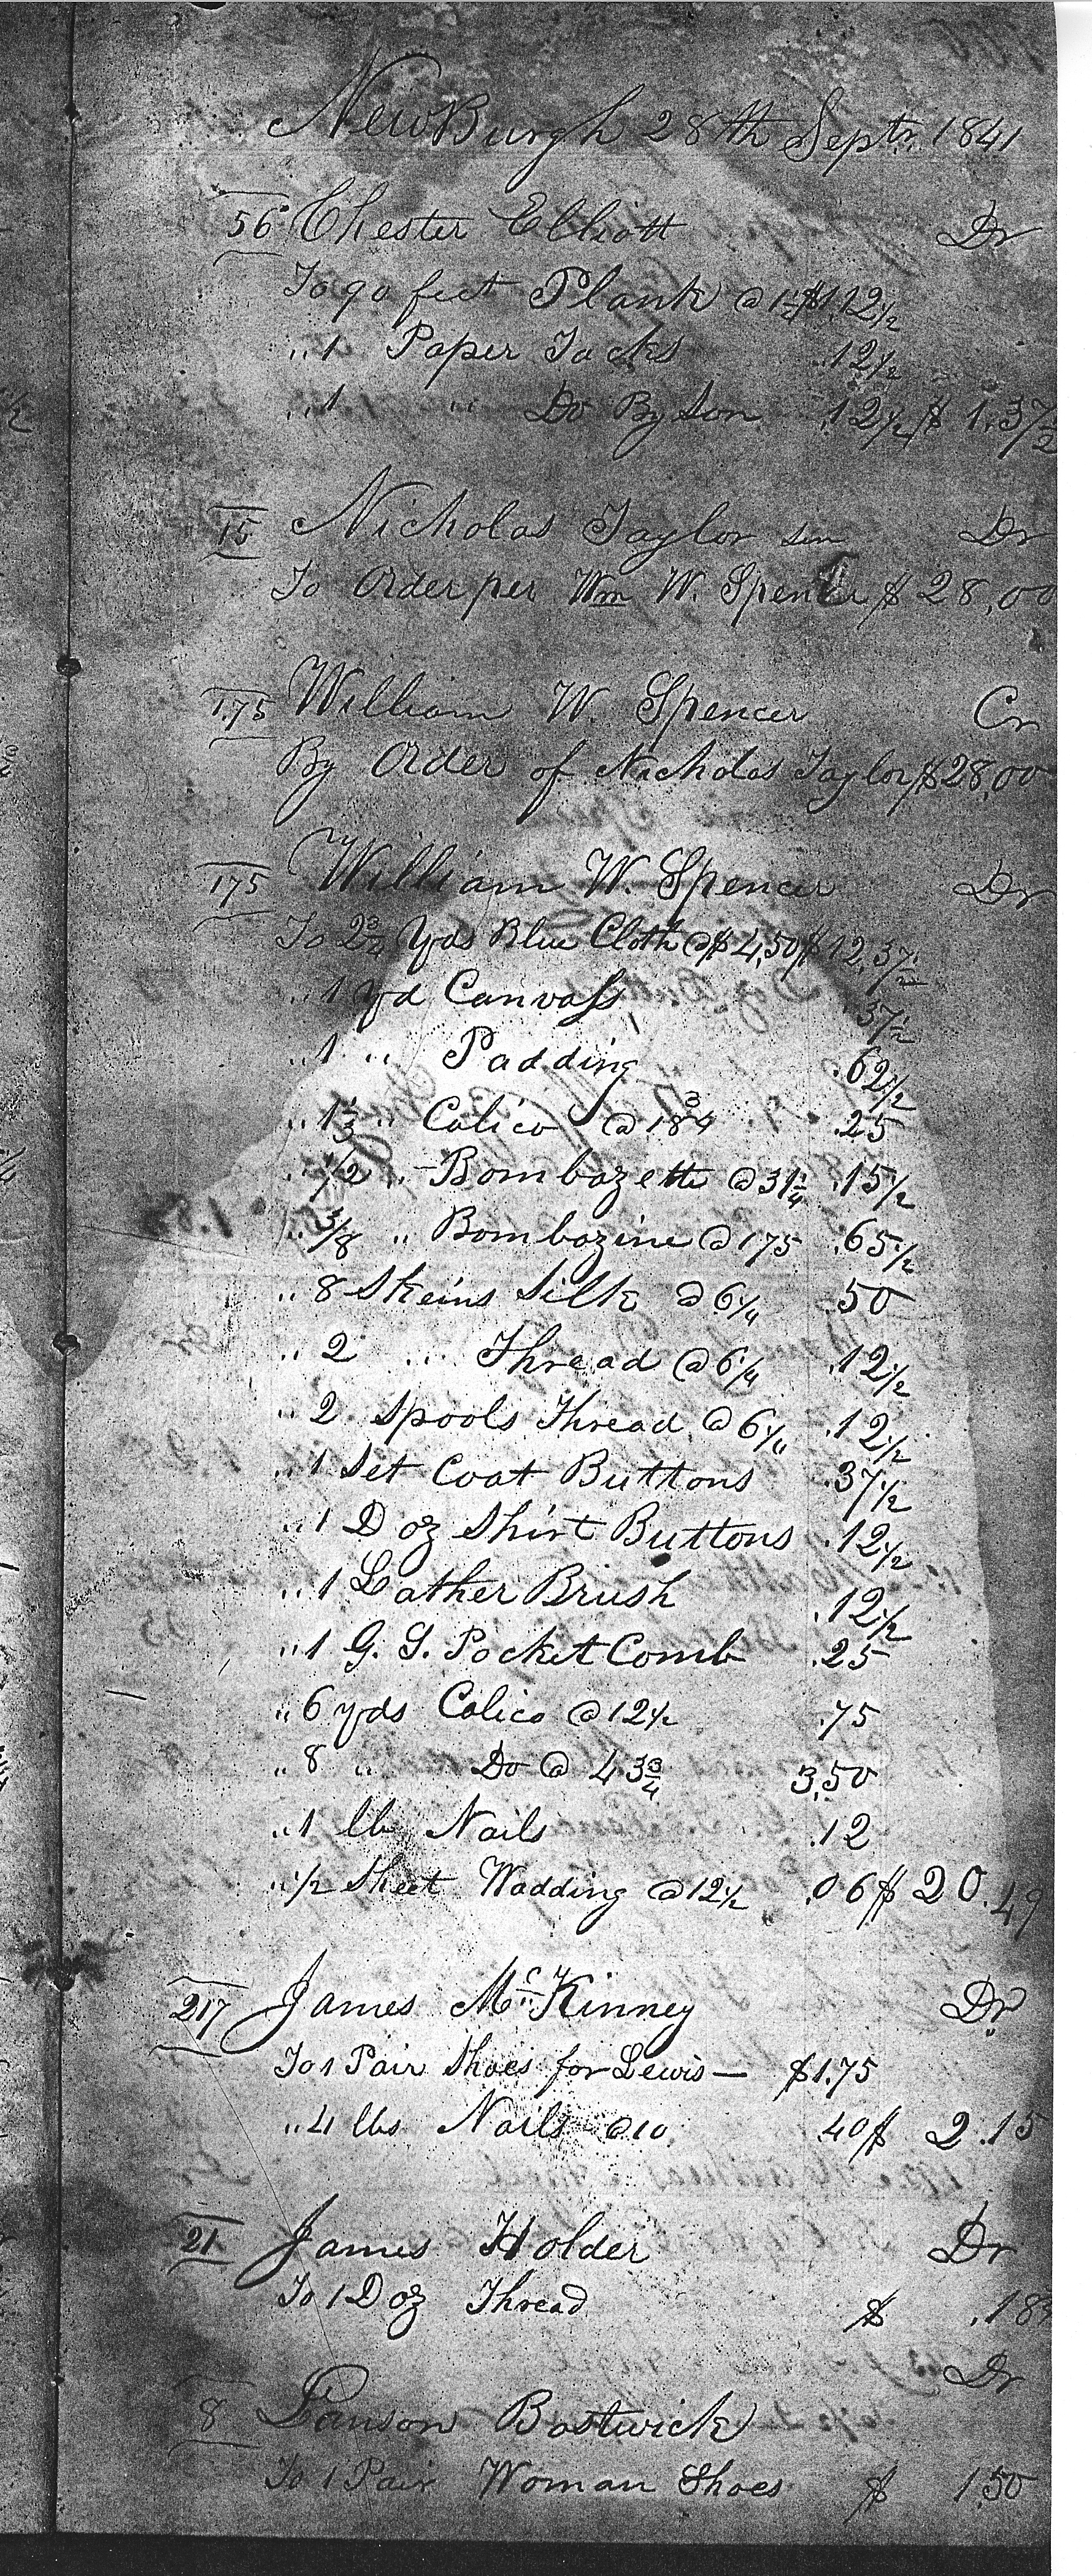 NewBurgh 28th Septr. 1841
56 Chester Elliott Dr
To 90 feet Plank @ 1¼ $1.12½
" 1 Paper Tacks .12½
" 1 " Do By Son .12½ $ 1.37½
15 Nicholas Taylor sen Dr
To Order per Wm W. Spencer $ 28,00
175 William W. Spencer Cr
By Order of Nicholas Taylor $28,00
175 William W. Spencer Dr
To 2¾ Yds Blue Cloth @ $4,50 $12,37½
" 1 yd Canvass .37½
" 1 " Padding .62½
" 1⅓ " Calico @ 18¾ .25
" ½ " Bombazette @ 31¼ .15½
" ⅜ " Bombazine @ 175 .65½
" 8 Skeins Silk @ 6¼ 50
" 2 " Thread @ 6¼ .12½
" 2 Spools Thread @ 6¼ .12½
" 1 Set Coat Buttons .37½
" 1 Doz Shirt Buttons .12½
" 1 Lather Brush .12½
" 1 G. S. Pocket Comb .25
" 6 yds Calico @ 12½ .75
" 8 " Do @ 43¾ 3,50
" 1 lb Nails .12
" ½ Sheet Wadding @ 12½ .06 $ 20.49
217 James McKinney Dr
To 1 Pair Shoes for Lewis — $1.75
" 4 lbs Nails @ 10 .40 $ 2.15
21 James Holder Dr
To 1 Doz Thread $ .18¾
8 Bostwick Dr
To 1 Pair Woman Shoes $ 1.50